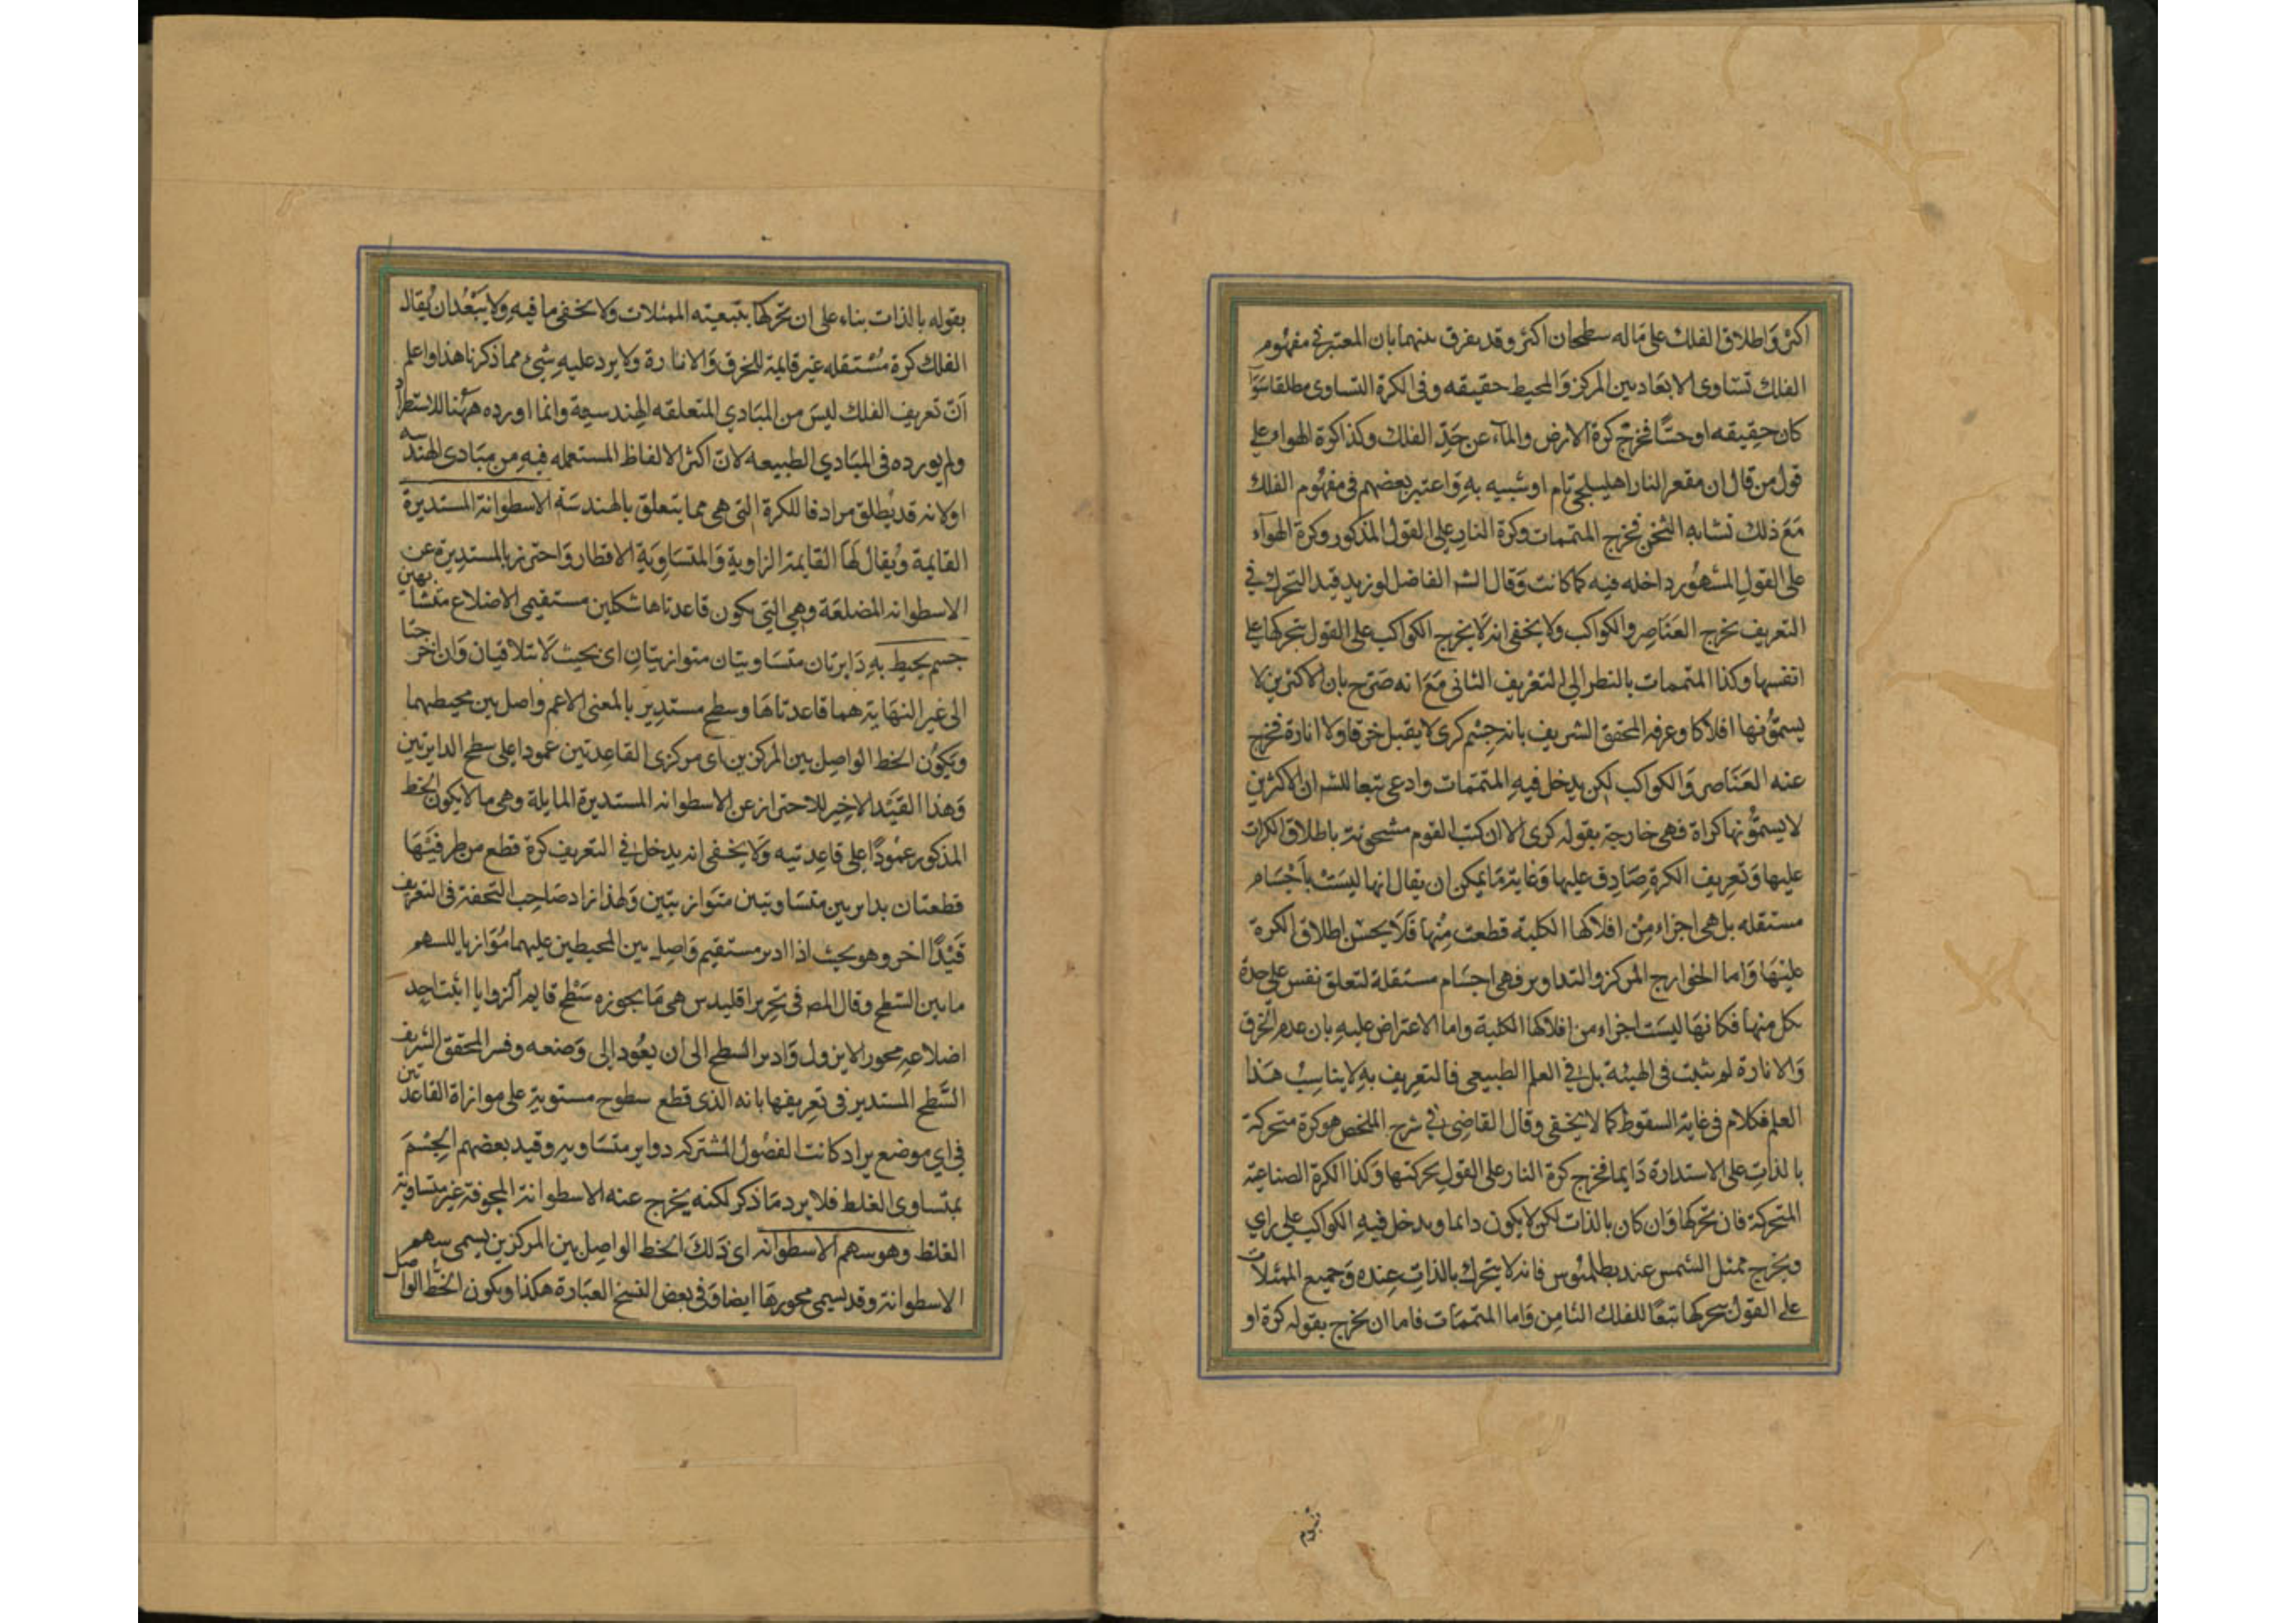 اكثر واطلاق الفلك على ماله سطحان اكثر وقد يفرق بينهما بان المعتبر في مفهوم
الفلك تساوى الابعاد بين المركز والمحيط حقيقه وفى الكرة التساوى مطلقا سوآ
كان حقيقه او حسًّا فخرج كرة الارض والمآء عن حدّ الفلك وكذا كرة الهواء على
قول من قال ان مقعر النار اهليلجى تام او شبيه به واعتبر بعضهم في مفهوم الفلك
مع ذلك تشابه الثخن فخرج المتممات وكرة النار على القول المذكور وكرة الهوآء
على القول المشهور داخله فيه كما كانت وقال الش الفاضل لو زيد قيد التحرك في
التعريف يخرج العناصر والكواكب ولا يخفى انه لا يخرج الكواكب على القول بتحركها على
انفسها وكذا المتممات بالنظر الى التعريف الثانى مع انه صرّح بان الاكثرين لا
يسمّونها افلاكا وعرفه المحقق الشريف بانه جسم كرى لا يقبل خرقا ولا انارة فخرج
عنه العناصر والكواكب لكن يدخل فيه المتممات وادعى تبعا للش ان الاكثرين
لا يسمّونها كراة فهى خارجة بقوله كرى الا ان كتب القوم مشحونة باطلاق الكرات
عليها وتعريف الكرة صادق عليها وغاية ما يمكن ان يقال انها ليست باجسام
مستقله بل هى اجزاء من افلاكها الكلية قطعت منها فلا يحسن اطلاق الكرة
عليها واما الخوارج المركز والتداوير فهى اجسام مستقلة لتعلق نفس على حدة
بكل منها فكانها ليست اجزاء من افلاكها الكلية واما الاعتراض عليه بان عدم الخرق
والانارة لم يثبت فى الهيئة بل في العلم الطبيعى فالتعريف به لا يناسب هذا
العلم فكلام فى غاية السقوط كما لا يخفى وقال القاضى في شرح الملخص هو كرة متحركة
بالذات على الاستدارة دايما فخرج كرة النار على القول بحركتها وكذا الكرة الصناعية
المتحركة فان تحركها وان كان بالذات لكن لا يكون دائما ويدخل فيه الكواكب على راي
ويخرج ممثل الشمس عند بطلميوس فانه لا يتحرك بالذات عنده وجميع الممثلات
على القول بتحركها تبعا للفلك الثامن واما المتممات فاما ان يخرج بقوله كرة او
بقوله بالذات بناء على ان تحركها بتبعيته الممثلات ولا يخفى ما فيه ولا يبعد ان يقال
الفلك كرة مستقله غير قابلة للخرق والانارة ولا يرد عليه شيئ مما ذكرنا هذا واعلم
انّ تعريف الفلك ليس من المبادي المتعلقه الهندسية وانما اورده ههنا للاستطراد
ولم يورده فى المبادي الطبيعه لانّ اكثر الالفاظ المستعمله فيه من مبادى الهندسه
او لانه قد يطلق مرادفا للكرة التى هى مما يتعلق بالهندسة الاسطوانة المستديرة
القايمة ويقال لها القايمة الزاوية والمتساوية الاقطار واحترز بالمستديرة عن
الاسطوانه المضلعة وهي التي يكون قاعدتاها شكلين مستقيمى الاضلاع متشابهين
جسم يحيط به دايرتان متساويتان متوازيتان اى بحيث لا تتلاقيان وان اخرجتا
الى غير النهاية هما قاعدتاها وسطح مستدير بالمعنى الاعم واصل بين محيطيهما
ويكون الخط الواصل بين المركزين اى مركزى القاعدتين عمودا على سطح الدايرتين
وهذا القيد الاخير للاحتراز عن الاسطوانه المستديرة المايلة وهى ما لا يكون الخط
المذكور عمودًا على قاعدتيه ولا يخفى انه يدخل في التعريف كرة قطع من طرفيها
قطعتان بدايرتين متساويتين متوازيتين ولهذا زاد صاحب التحفة فى التعريف
قيدًا اخر وهو بحيث اذا ادير مستقيم واصل بين المحيطين عليهما موازيا للسهم
ماس السطح وقال المص فى تحرير اقليدس هى ما يحوزه سطح قايم الزوايا اثبت احد
اضلاعه محورا لا يزول وادير السطح الى ان يعود الى وضعه وفسر المحقق الشريف
السطح المستدير فى تعريفها بانه الذى قطع سطوح مستوية على موازاة القاعدتين
فى اي موضع يراد كانت الفصول المشتركه دواير متساويه وقيد بعضهم الجسم
بمتساوى الغلظ فلا يرد ما ذكر لكنه يخرج عنه الاسطوانة المجوفة غير متساوية
الغلظ وهو سهم الاسطوانه اى ذلك الخط الواصل بين المركزين يسمى سهم
الاسطوانة وقد يسمى محورها ايضا وفى بعض النسخ العبارة هكذا ويكون الخط الواصل